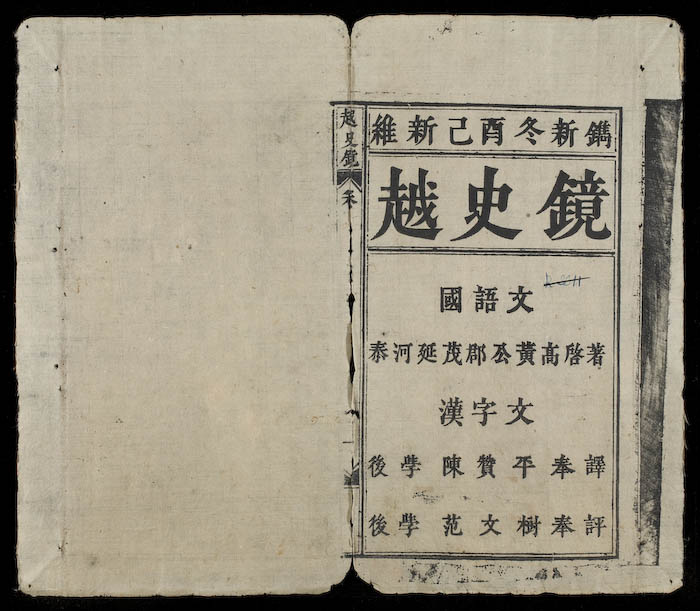 維新己酉冬新鐫
越史鏡
國語文
泰河延茂郡公黃高啓著
漢字文
後学陳賛平奉譯
後学范文樹奉評
越史鏡